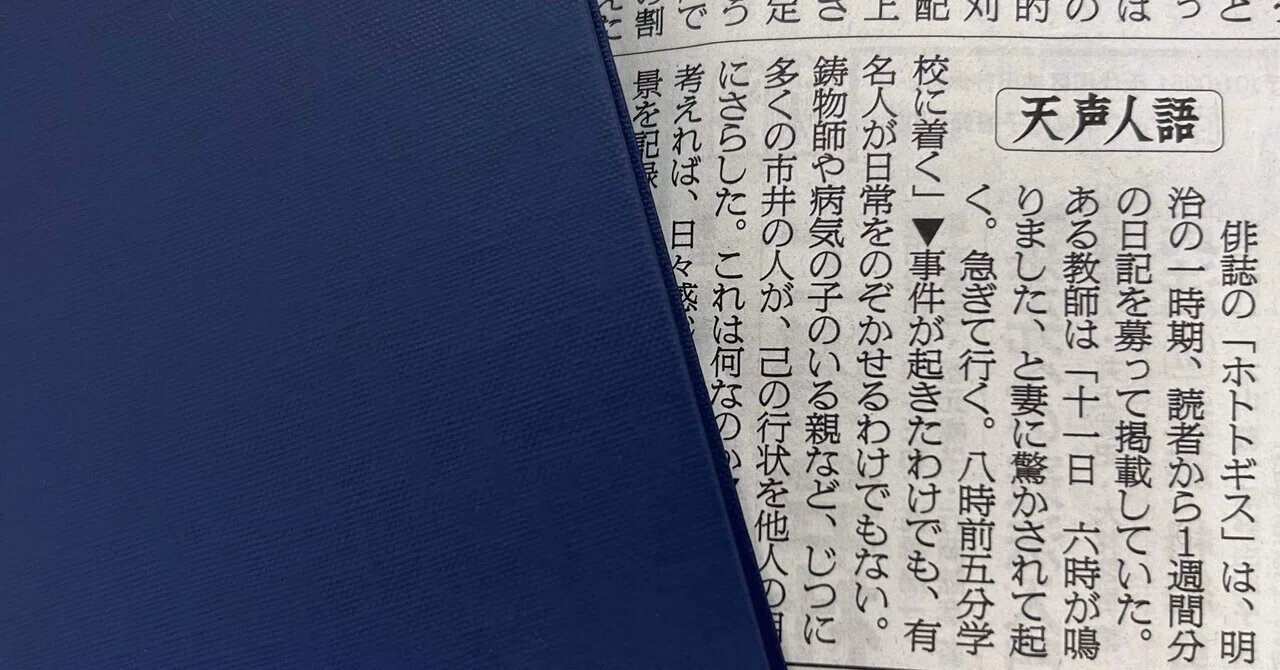 天声人語
俳誌の「ホトトギス」は、明
治の一時期、読者から1週間分
の日記を募って掲載していた。
ある教師は「十一日　六時が鳴
りました、と妻に驚かされて起
く。急ぎて行く。八時前五分学
校に着く」▼事件が起きたわけでも、有
名人が日常をのぞかせるわけでもない。
鋳物師や病気の子のいる親など、じつに
多くの市井の人が、己の行状を他人の目
にさらした。これは何なのか
考えれば、日々感
景を記録